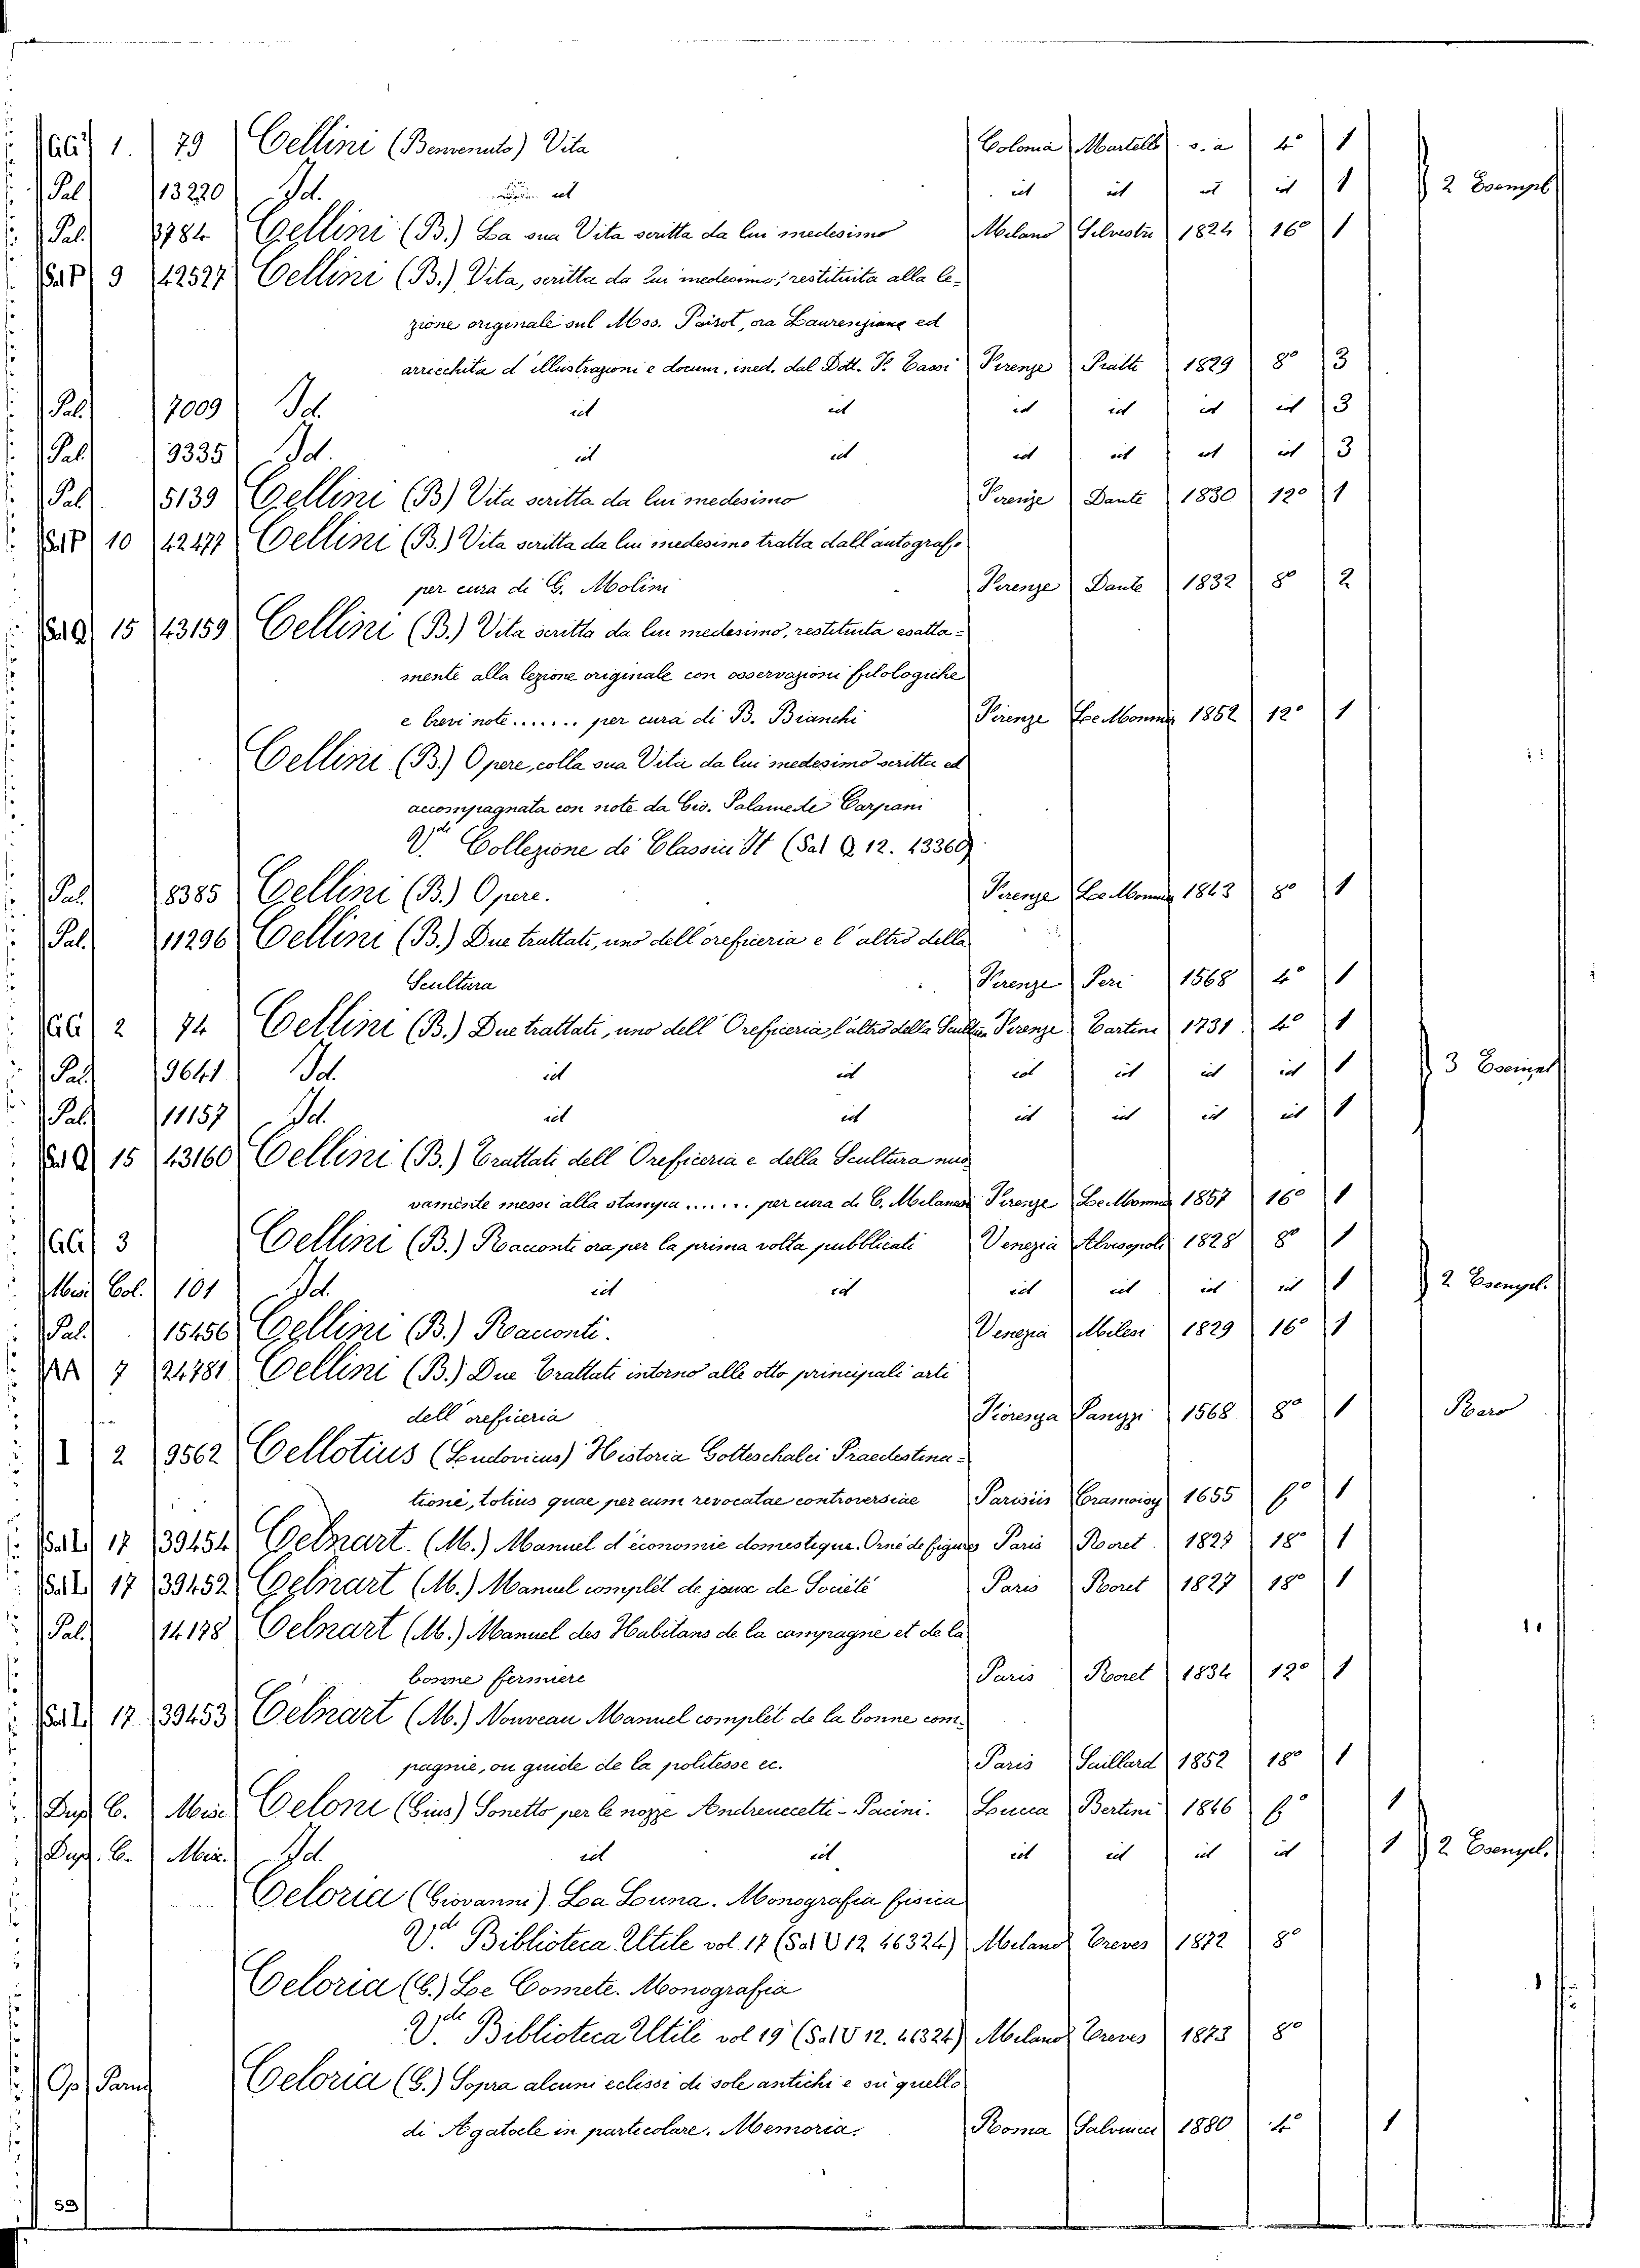 1. 79 Cellini (Benvenuto) Vita Colonia Martello s. a 4° 1
Pal 13220 Id. id id id id id 1 2 Esempl
Pal. 3784 Cellini (B.) La sua Vita scritta da lui medesimo Milano Silvestri 1824 16° 1
Sal P 9 42527 Cellini (B.) Vita, scritta da lui medesimo, restituita alla le-
zione originale sul Mss. Poirot, ora Laurenziano ed
arricchita d'illustrazioni e docum. ined. dal Dott. F. Tassi Firenze Piatti 1829 8° 3
Pal. 7009 Id. id id id id id id 3
Pal. 9335 Id. id id id id id id 3
Pal. 5139 Cellini (B) Vita scritta da lui medesimo Firenze Dante 1830 12° 1
Sal P 10 42477 Cellini (B.) Vita scritta da lui medesimo tratta dall'autografo
per cura di G. Molini Firenze Dante 1832 8° 2
Sal Q 15 43159 Cellini (B.) Vita scritta da lui medesimo, restituita esatta-
mente alla lezione originale con osservazioni filologiche
e brevi note....... per cura di B. Bianchi Firenze Le Monnier 1852 12° 1
Cellini (B.) Opere, colla sua Vita da lui medesimo scritta ed
accompagnata con note da Gio. Palamede Carpani
Vde Collezione di Classici It (Sal Q 12. 43360)
Pal. 8385 Cellini (B.) Opere. Firenze Le Monnier 1843 8° 1
Pal. 11296 Cellini (B.) Due trattati, uno dell'oreficeria e l'altro della
Scultura Firenze Peri 1568 4° 1
2 74 Cellini (B.) Due trattati, uno dell'Oreficeria l'altro della Scultura Firenze Tartini 1731. 4° 1
Pal. 9641 Id. id id id id id id 1 3 Esempl
Pal. 11157 Id. id id id id id id 1
Sal Q 15 43160 Cellini (B.) Trattati dell'Oreficeria e della Scultura nuo
vamente messi alla stampa ...... per cura di C. Milanesi Firenze Le Monnier 1857 16° 1
3 Cellini (B.) Racconti ora per la prima volta pubblicati Venezia Alvisopoli 1828 8° 1
Misc Col. 101 Id. id id id id id id 1 2 Esempl.
Pal. 15456 Cellini (B.) Racconti. Venezia Milesi 1829 16° 1
AA 7 24781 Cellini (B.) Due Trattati intorno alle otto principali arti
dell'oreficeria Fiorenza Panizzi 1568 8° 1 Raro
I 2 9562 Cellotius (Ludovicus) Historia Gotteschalci Praedestina-
tioni, totius quae per eum revocatae controversiae Parisiis Cramoisy 1655 f° 1
Sal L 17 39454 Celnart. (M.) Manuel d'économie domestique. Orné de figures Paris Roret 1827 18° 1
Sal L 17 39452 Celnart (M.) Manuel complèt de jeux de Société Paris Roret 1827 18° 1
Pal. 14178 Celnart (M.) Manuel des Habitans de la campagne et de la
bonne fermiere Paris Roret 1834 12° 1
Sal L 17 39453 Celnart (M.) Nouveau Manuel complèt de la bonne com-
pagnie, ou guide de la politesse ec. Paris Saillard 1852 18° 1
Dup C. Misc Celoni (Gius) Sonetto per le nozze Andreuccetti-Pacini. Lucca Bertini 1846 f° 1
Dup. C. Misc. Id. id id id id id id 1 2 Esempl.
Celoria (Giovanni) La Luna. Monografia fisica
Vde Biblioteca Utile vol. 17 (Sal U 12 46324) Milano Treves 1872 8°
Celoria (G.) Le Comete. Monografia
Vde Biblioteca Utili vol 19 (Sal U 12. 46324) Milano Treves 1873 8°
Op Parnd Celoria (G.) Sopra alcuni eclissi di sole antichi e su quello
di Agatocle in particolare. Memoria. Roma Salviucci 1880 4° 1
53